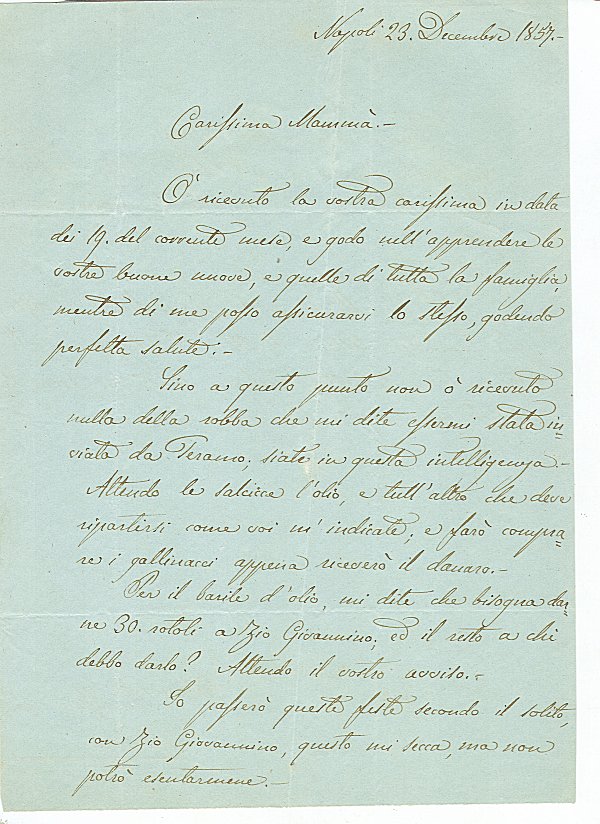 Napoli 23. Decembre 1857.-
Carissima Mammà.-
Ò ricevuto la vostra carissima in data
dei 19. del corrente mese, e godo nell'apprendere le
vostre buone nuove, e quelle di tutta la famiglia,
mentre di me posso assicurarvi lo stesso, godendo
perfetta salute.-
Sino a questo punto non ò ricevuto
nulla della robba che mi dite essermi stata in=
viata da Teramo; siate in questa intelligenza.-
Attendo le salcicce l'olio, e tutt'altro che deve
ripartirsi come voi m'indicate, e farò compra=
re i gallinacci appena riceverò il danaro.-
Per il barile d'olio, mi dite che bisogna dar=
ne 30. rotoli a Zio Giovannino, ed il resto a chi
debbo darlo? Attendo il vostro avviso.-
Io passerò queste feste secondo il solito,
con Zio Giovannino, questo mi secca, ma non
potrò esentarmene.-